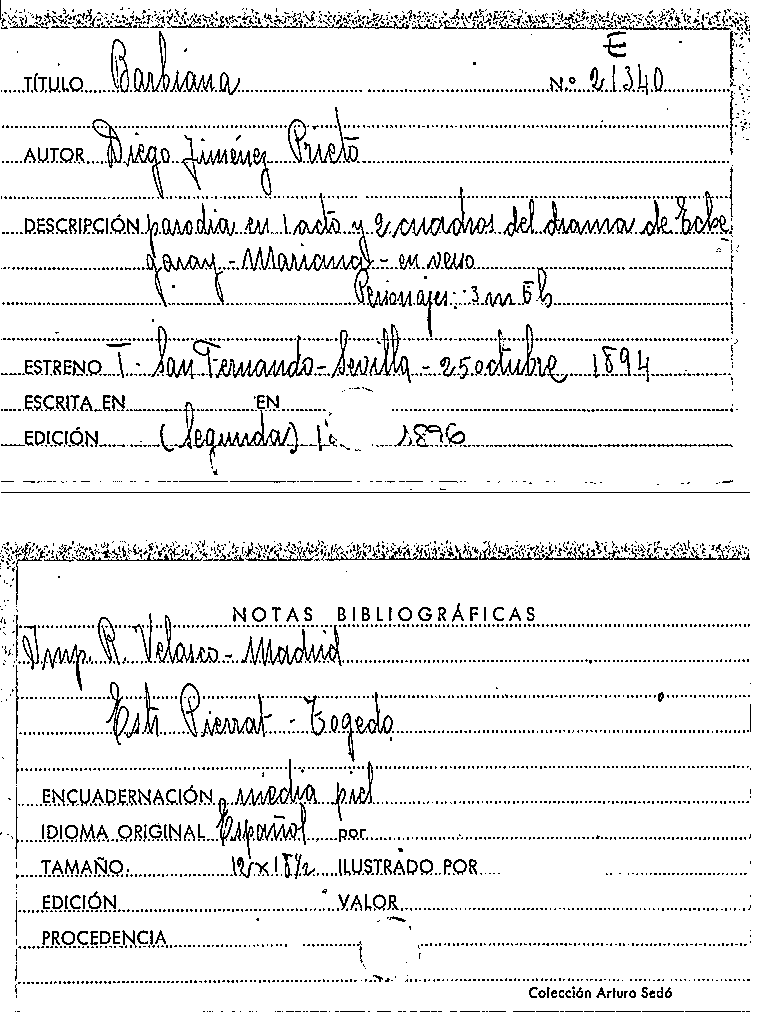 E
TÍTULO Barbiana N.º 21340
AUTOR Diego Jiménez Prieto
DESCRIPCIÓN parodia en 1 acto y 2 cuadros del drama de Eche
garay - Mariana - en verso
Personajes: 3 m 5 h
ESTRENO T. San Fernando - Sevilla - 25 octubre 1894
ESCRITA EN EN
EDICIÓN (Segunda) 1896
NOTAS BIBLIOGRÁFICAS
Imp. R. Velasco - Madrid
Estr Pierrat - Togedo
ENCUADERNACIÓN media piel
IDIOMA ORIGINAL Español por
TAMAÑO. 12 x 18½ ILUSTRADO POR
EDICIÓN VALOR
PROCEDENCIA
Colección Arturo Sedó